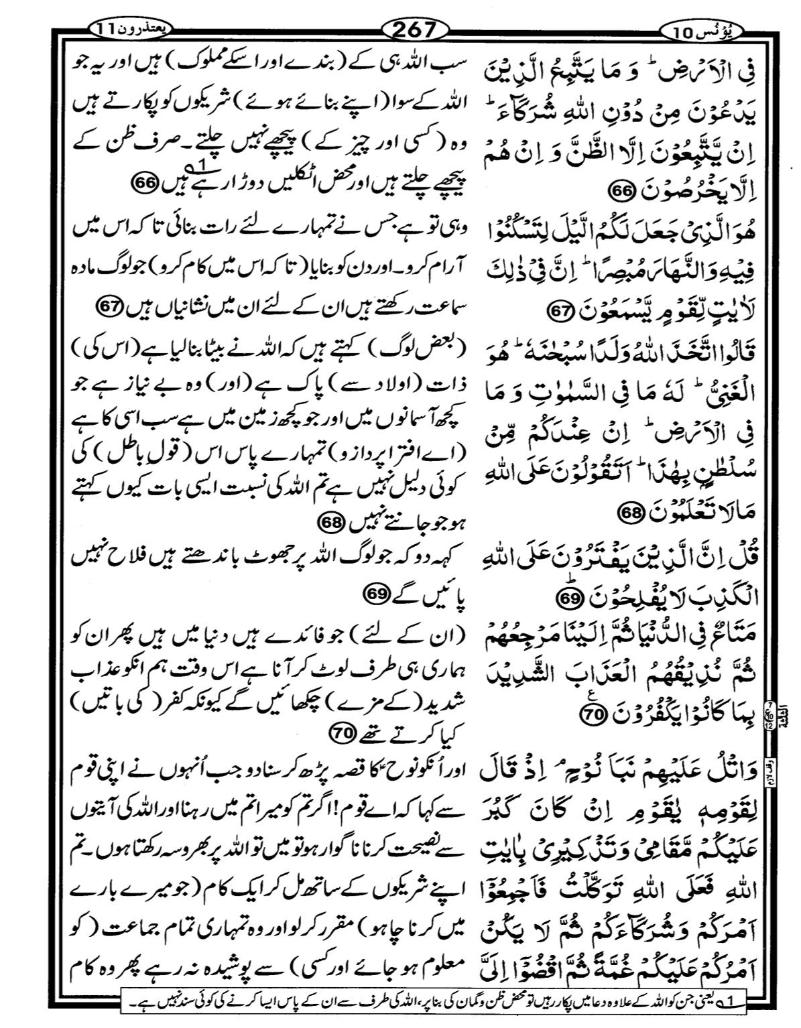 یُوْنُس 10
267
یعتذرون 11
فِی الْاَرْضِ ؕ وَ مَا یَتَّبِعُ الَّذِیْنَ
یَدْعُوْنَ مِنْ دُوْنِ اللّٰهِ شُرَكَآءَ ؕ
اِنْ یَّتَّبِعُوْنَ اِلَّا الظَّنَّ وَ اِنْ هُمْ
اِلَّا یَخْرُصُوْنَ 66
هُوَ الَّذِیْ جَعَلَ لَكُمُ الَّیْلَ لِتَسْكُنُوْا
فِیْهِ وَ النَّهَارَ مُبْصِرًا ؕ اِنَّ فِیْ ذٰلِكَ
لَاٰیٰتٍ لِّقَوْمٍ یَّسْمَعُوْنَ 67
قَالُوا اتَّخَذَ اللّٰهُ وَلَدًا سُبْحٰنَهٗ ؕ هُوَ
الْغَنِیُّ ؕ لَهٗ مَا فِی السَّمٰوٰتِ وَ مَا
فِی الْاَرْضِ ؕ اِنْ عِنْدَكُمْ مِّنْ
سُلْطٰنٍۭ بِهٰذَا ؕ اَتَقُوْلُوْنَ عَلَی اللّٰهِ
مَا لَا تَعْلَمُوْنَ 68
قُلْ اِنَّ الَّذِیْنَ یَفْتَرُوْنَ عَلَی اللّٰهِ
الْكَذِبَ لَا یُفْلِحُوْنَ ؕ 69
مَتَاعٌ فِی الدُّنْیَا ثُمَّ اِلَیْنَا مَرْجِعُهُمْ
ثُمَّ نُذِیْقُهُمُ الْعَذَابَ الشَّدِیْدَ
بِمَا كَانُوْا یَكْفُرُوْنَ ع 70
وَ اتْلُ عَلَیْهِمْ نَبَاَ نُوْحٍ ۘ اِذْ قَالَ
لِقَوْمِهٖ یٰقَوْمِ اِنْ كَانَ كَبُرَ
عَلَیْكُمْ مَّقَامِیْ وَ تَذْكِیْرِیْ بِاٰیٰتِ
اللّٰهِ فَعَلَی اللّٰهِ تَوَكَّلْتُ فَاَجْمِعُوْۤا
اَمْرَكُمْ وَ شُرَكَآءَكُمْ ثُمَّ لَا یَكُنْ
اَمْرُكُمْ عَلَیْكُمْ غُمَّةً ثُمَّ اقْضُوْۤا اِلَیَّ
سب اللہ ہی کے (بندے اور اسکے مملوک) ہیں اور یہ جو
اللہ کے سوا (اپنے بنائے ہوئے) شریکوں کو پکارتے ہیں
وہ (کسی اور چیز کے) پیچھے نہیں چلتے۔ صرف ظن کے
پیچھے چلتے ہیں اور محض اٹکلیں دوڑا رہے ہیں 1 66
وہی تو ہے جس نے تمہارے لئے رات بنائی تاکہ اس میں
آرام کرو۔ اور دن کو بنایا (تاکہ اس میں کام کرو) جو لوگ مادہ
سماعت رکھتے ہیں ان کے لئے ان میں نشانیاں ہیں 67
(بعض لوگ) کہتے ہیں کہ اللہ نے بیٹا بنا لیا ہے (اس کی)
ذات (اولاد سے) پاک ہے (اور) وہ بے نیاز ہے جو
کچھ آسمانوں میں اور جو کچھ زمین میں ہے سب اسی کا ہے
(اے افترا پردازو) تمہارے پاس اس (قولِ باطل) کی
کوئی دلیل نہیں ہے تم اللہ کی نسبت ایسی بات کیوں کہتے
ہو جو جانتے نہیں 68
کہہ دو کہ جو لوگ اللہ پر جھوٹ باندھتے ہیں فلاح نہیں
پائیں گے 69
(ان کے لئے) جو فائدے ہیں دنیا میں ہیں پھر ان کو
ہماری ہی طرف لوٹ کر آنا ہے اس وقت ہم انکو عذاب
شدید (کے مزے) چکھائیں گے کیونکہ کفر (کی باتیں)
کیا کرتے تھے 70
اور اُنکو نوحؑ کا قصہ پڑھ کر سنا دو جب اُنہوں نے اپنی قوم
سے کہا کہ اے قوم! اگر تم کو میرا تم میں رہنا اور اللہ کی آیتوں
سے نصیحت کرنا ناگوار ہو تو میں تو اللہ پر بھروسہ رکھتا ہوں۔ تم
اپنے شریکوں کے ساتھ مل کر ایک کام (جو میرے بارے
میں کرنا چاہو) مقرر کر لو اور وہ تمہاری تمام جماعت (کو
معلوم ہو جائے اور کسی) سے پوشیدہ نہ رہے پھر وہ کام
الثلثة
وقف لازم
1 یعنی جن کو اللہ کے علاوہ دعا میں پکار رہیں تو محض ظن و گمان کی بنا پر، اللہ کی طرف سے ان کے پاس ایسا کرنے کی کوئی سند نہیں ہے۔